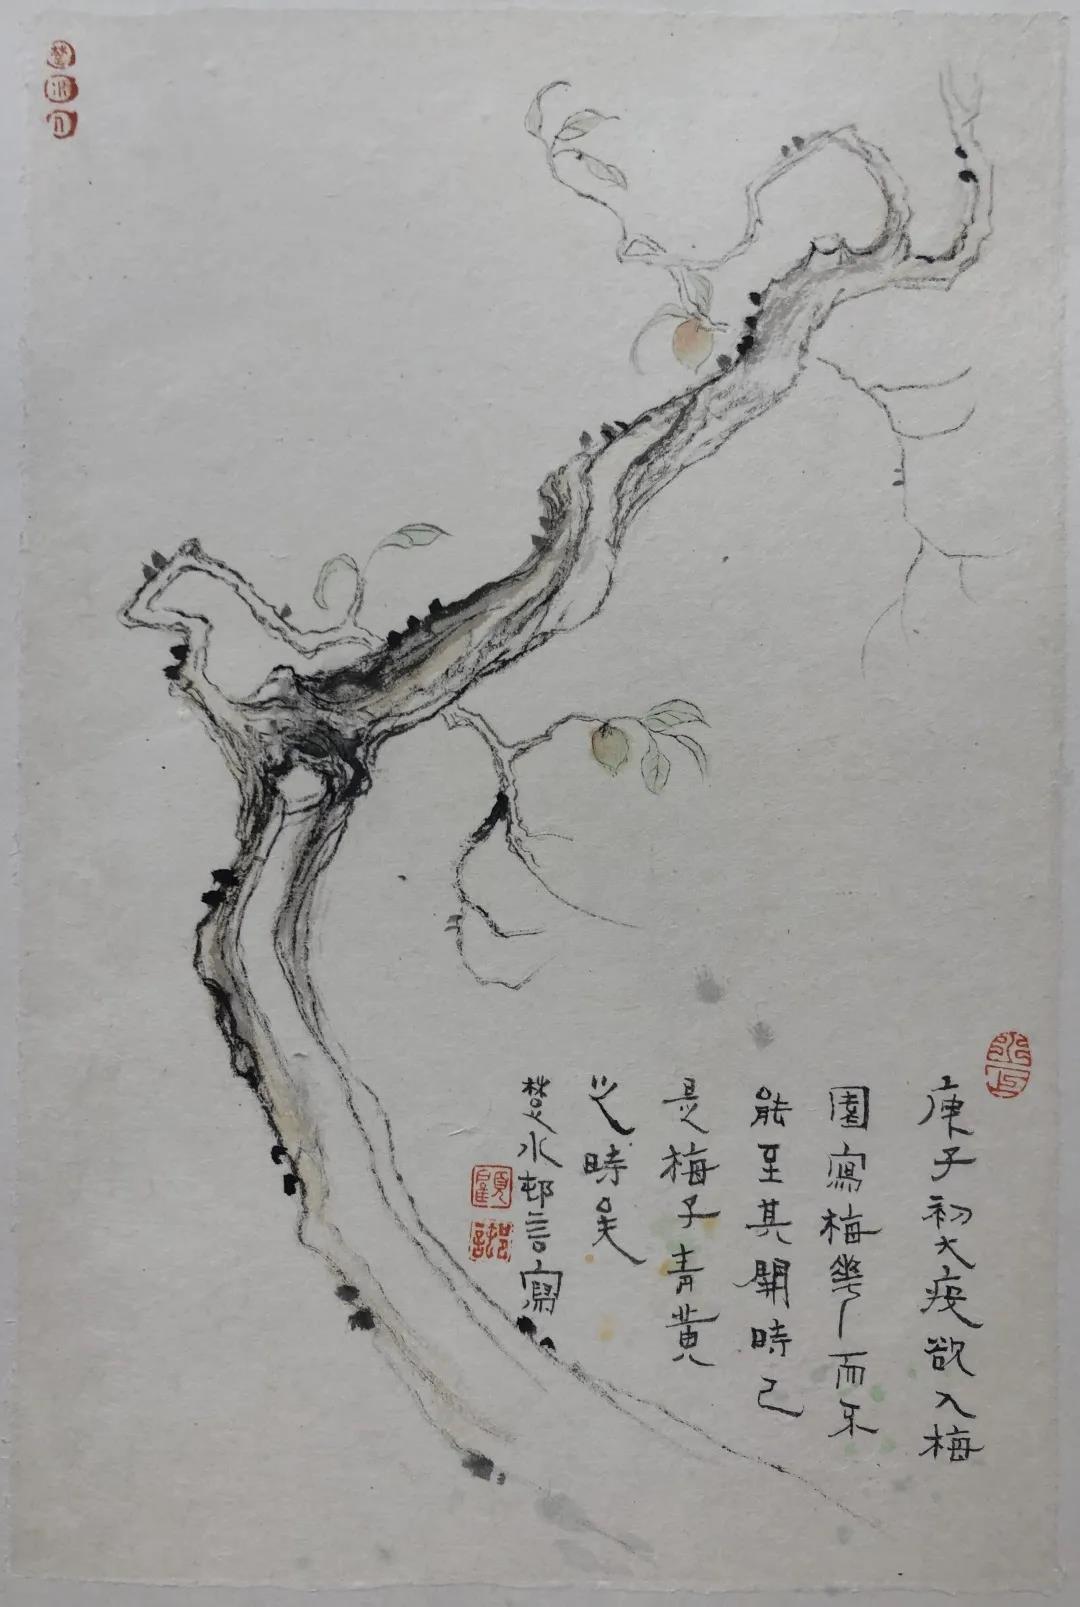 庚子初大疫欲入梅
園寫梅華而不
能至其開時已
是梅子青黃
之時矣
楚水邨言寫
楚水人
顧